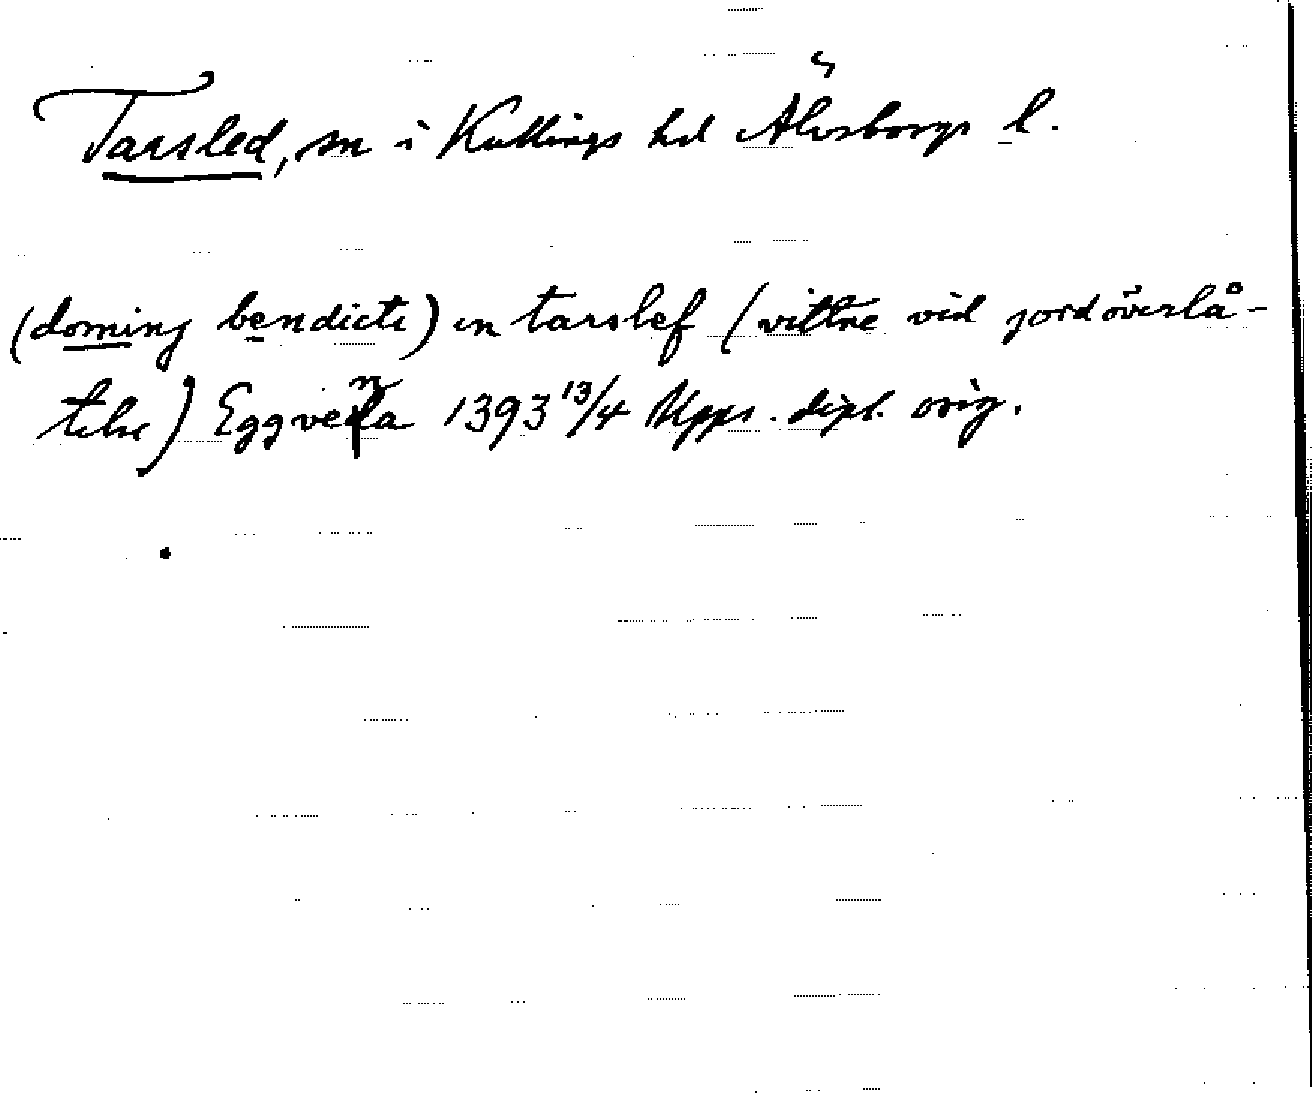 Tarsled, sn i Kullings hd Älvsborgs l.
(doming bendicti) in tarslef (vittne vid jordöverlå-
telse) Eggvena 1393 13/4 Upps. dipl. orig.